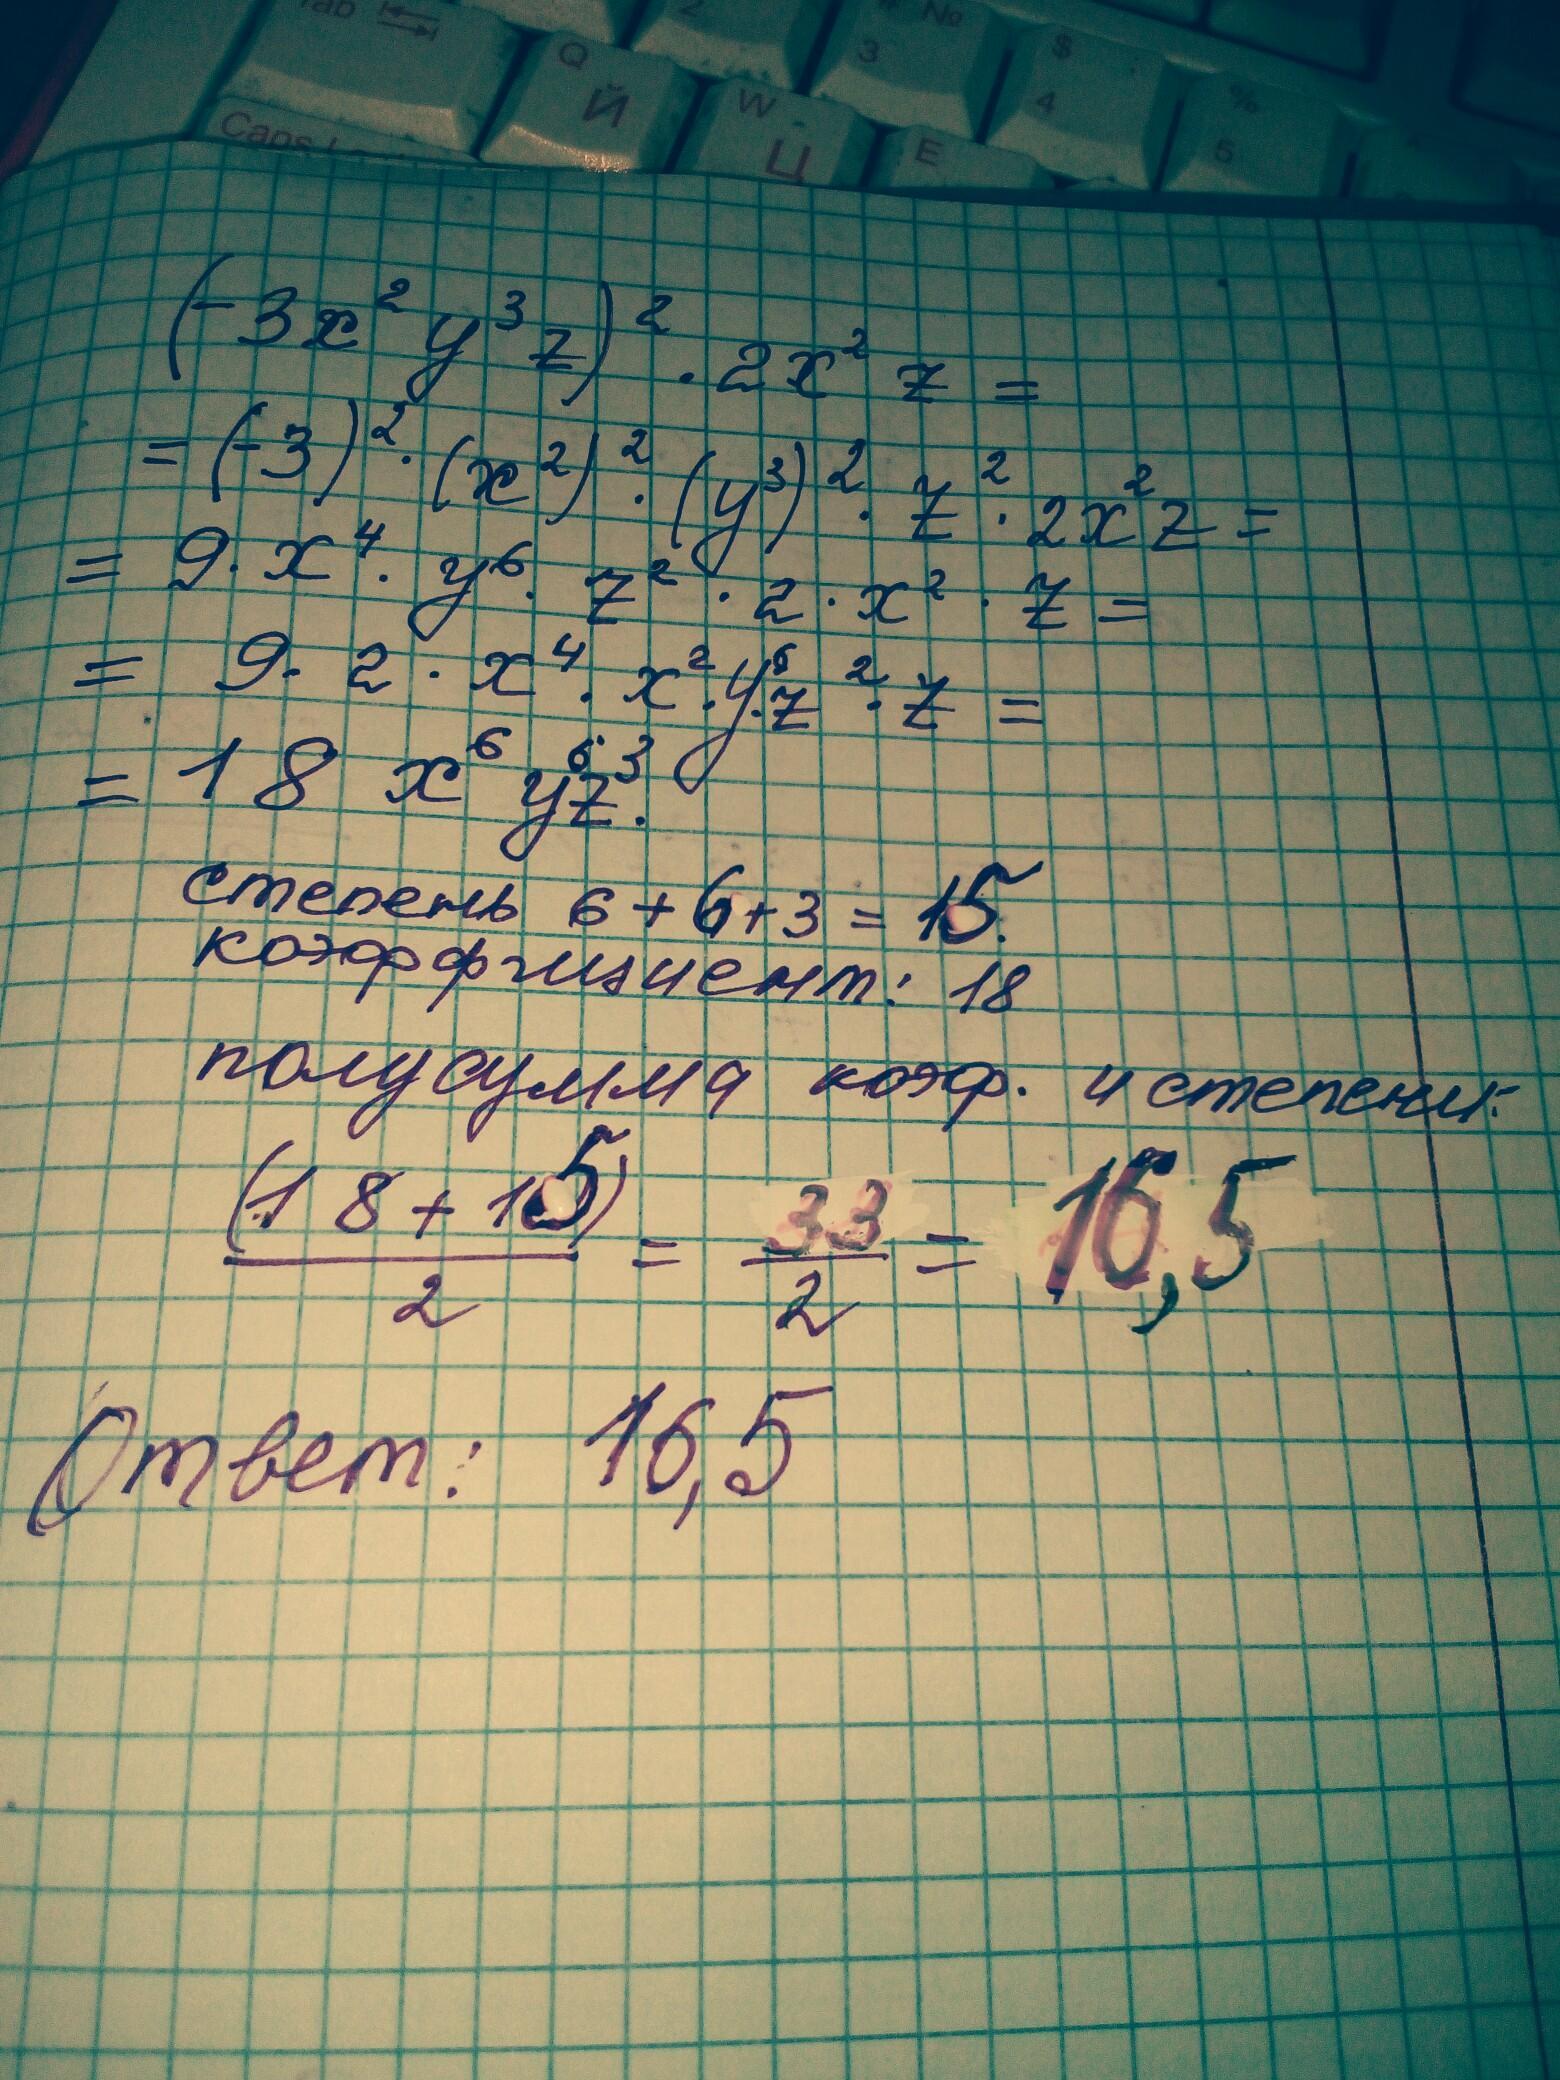 Tab 2 3 № $ 4 % 5
Caps Q Й W Ц E
(-3x²y³z)² · 2x² z =
= (-3)² · (x²)² · (y³)² · z² · 2x²z =
= 9 · x⁴ · y⁶ · z² · 2 · x² · z =
= 9 · 2 · x⁴ · x² · y⁶ · z² · z =
= 18 x⁶ y⁶z³.
степень 6+6+3 = 15.
коэффициент: 18
полусумма коэф. и степени:
(18+15)/2 = 33/2 = 16,5
Ответ: 16,5